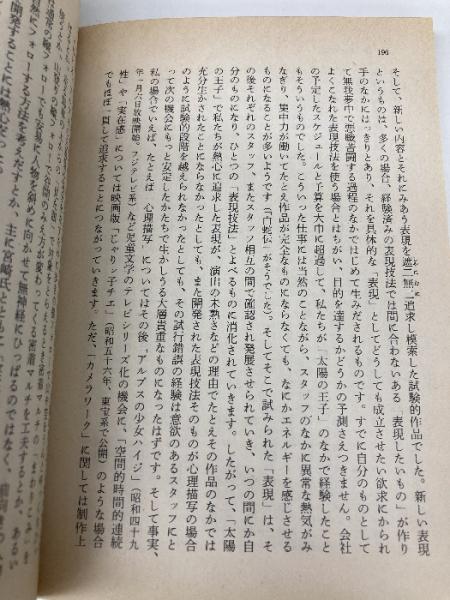 196
そして、新しい内容とそれにみあう表現を遮二無二追求し模索した試験的作品でした。新しい表現
というものは、多くの場合、経験済みの表現技法では間に合わないある「表現したいもの」が作り
手のなかにはっきりとあり、それを具体的な「表現」としてどうしても成立させたい欲求にかられ
て無我夢中で悪戦苦闘する過程のなかではじめて生みだされるものです。すでに自分のものとして
よくこなれた表現技法を使う場合とはちがい、目的を達するかどうかの予測さえつきません。会社
の予定したスケジュールと予算を大巾に超過して、私たちが「太陽の王子」のなかで経験したこと
もそういうものでした。こういった仕事には当然のことながら、スタッフのなかに異常な熱気がみ
なぎり、集中力が働いてたとえ作品が完全なものにならなくても、なにかエネルギーを感じさせる
ものになることが多いようです(『白蛇伝』がそうでした)。そしてそこで試みられた「表現」は、そ
の後それぞれのスタッフ、またスタッフ相互の間で確認され発展させられていき、いつの間にか自
分のものになり、ひとつの「表現技法」とよべるものに消化されていきます。したがって、「太陽
の王子」で私たちが熱心に追求した表現が、演出の未熟さなどの理由でたとえその作品のなかでは
充分生かされたことにならなかったとしても、また開発された表現技法そのものが心理描写の場合
のように試験的段階を越えられなかったとしても、その試行錯誤の経験は意欲のあるスタッフにと
って次の機会にもっと安定したかたちで生かしうる大層貴重なものになったはずです。そして事実、
私の場合でいえば、たとえば「心理描写」についてはその後『アルプスの少女ハイジ』(昭和四十九
年一月六日放映開始、フジテレビ系)など児童文学のテレビシリーズ化の機会に、「空間的時間的連続
性」や「実在感」については映画版『じゃりン子チエ』(昭和五十六年、東宝系で公開)のような場合
でもほぼ一貫して追求することにつながっていきました。ただ、「カメラワーク」に関しては制作上